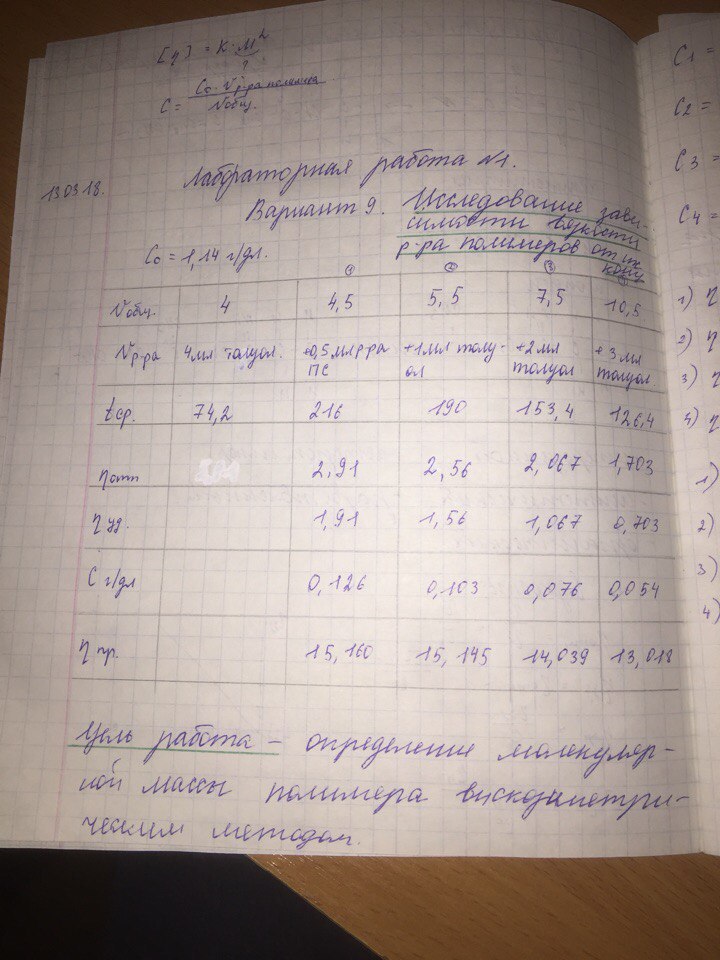 [η] = K·M^α
?
C = C₀·Vр-ра полимера / Vобщ.
13.03.18.
Лабораторная работа №1.
Вариант 9. Исследование зави-
симости вязкости
р-ра полимеров от их
C₀ = 1,14 г/дл.
① ② ③
Vобщ. 4 4,5 5,5 7,5 10,5
Vр-ра 4мл толуол. +0,5 мл р-ра ПС +1 мл толу-ол +2 мл толуол + 3 мл толуол
tср. 74,2 216 190 153,4 126,4
ηотн 2,91 2,56 2,067 1,703
ηуд. 1,91 1,56 1,067 0,703
C г/дл 0,126 0,103 0,076 0,054
η пр. 15,160 15,145 14,039 13,018
Цель работа – определение молекуляр-
ной массы полимера вискозиметри-
ческим методом.
C1 =
C2 =
C3 =
C4 =
1) η
2) η
3) η
4) η
1)
2)
3)
4)